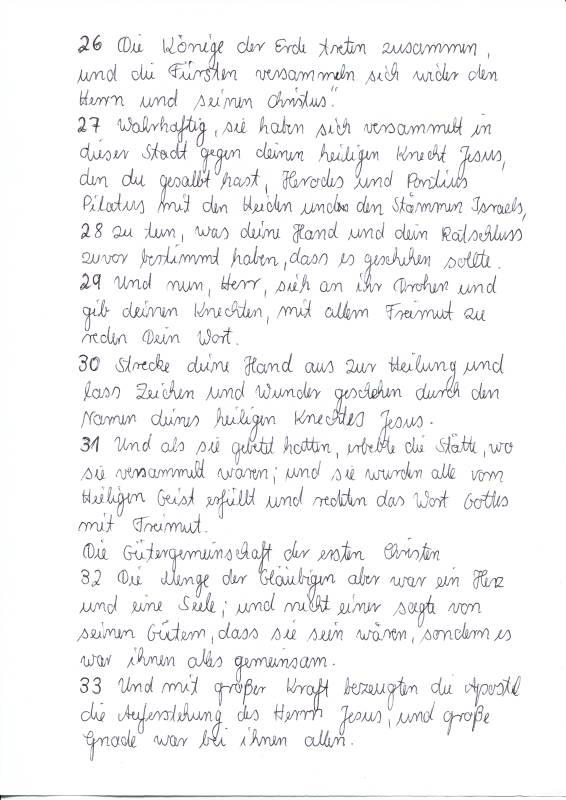 26 Die Könige der Erde treten zusammen,
und die Fürsten versammeln sich wider den
Herrn und seinen Christus".
27 Wahrhaftig, sie haben sich versammelt in
dieser Stadt gegen deinen heiligen Knecht Jesus,
den du gesalbt hast, Herodes und Pontius
Pilatus mit den Heiden und den Stämmen Israels,
28 zu tun, was deine Hand und dein Ratschluss
zuvor bestimmt haben, dass es geschehen sollte.
29 Und nun, Herr, sieh an ihr Drohen und
gib deinen Knechten, mit allem Freimut zu
reden Dein Wort.
30 Strecke deine Hand aus zur Heilung und
lass Zeichen und Wunder geschehen durch den
Namen deines heiligen Knechtes Jesus.
31 Und als sie gebetet hatten, erbebte die Stätte, wo
sie versammelt waren; und sie wurden alle vom
Heiligen Geist erfüllt und redeten das Wort Gottes
mit Freimut.
Die Gütergemeinschaft der ersten Christen
32 Die Menge der Gläubigen aber war ein Herz
und eine Seele; und nicht einer sagte von
seinen Gütern, dass sie sein wären, sondern es
war ihnen alles gemeinsam.
33 Und mit großer Kraft bezeugten die Apostel
die Auferstehung des Herrn Jesus, und große
Gnade war bei ihnen allen.